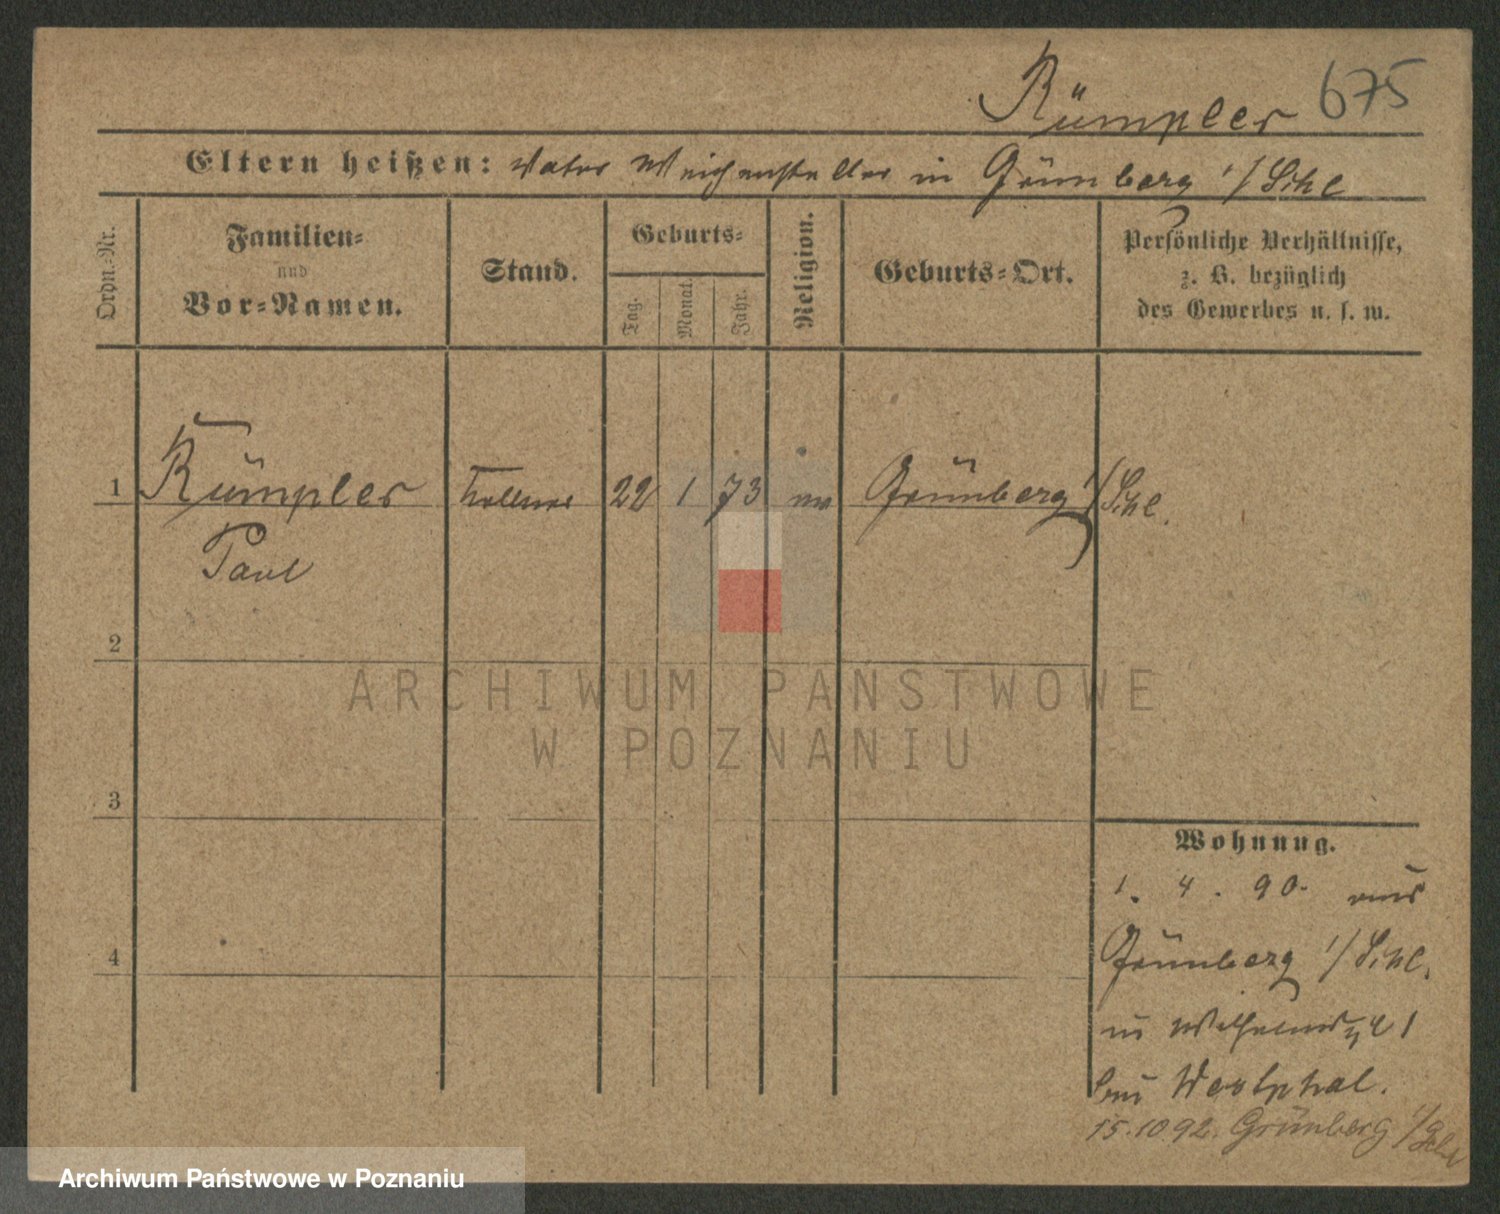 Rümpler 675
Eltern heißen: Vater Weichensteller in Grünberg i/Schl
Ordn.-Nr.
Familien-
und
Vor-Namen.
Stand.
Geburts-
Tag.
Monat.
Jahr.
Religion.
Geburts-Ort.
Persönliche Verhältnisse,
z. B. bezüglich
des Gewerbes u. s. w.
1 Rümpler Kellner 22 1 73 ev Grünberg i/Schl.
Paul
2
ARCHIWUM PAŃSTWOWE
W POZNANIU
3
Wohnung.
1. 4. 90. aus
Grünberg i/Schl.
4
in Wilhelmspl 1
bei Westphal.
15.10.92. Grünberg i/Schl
Archiwum Państwowe w Poznaniu